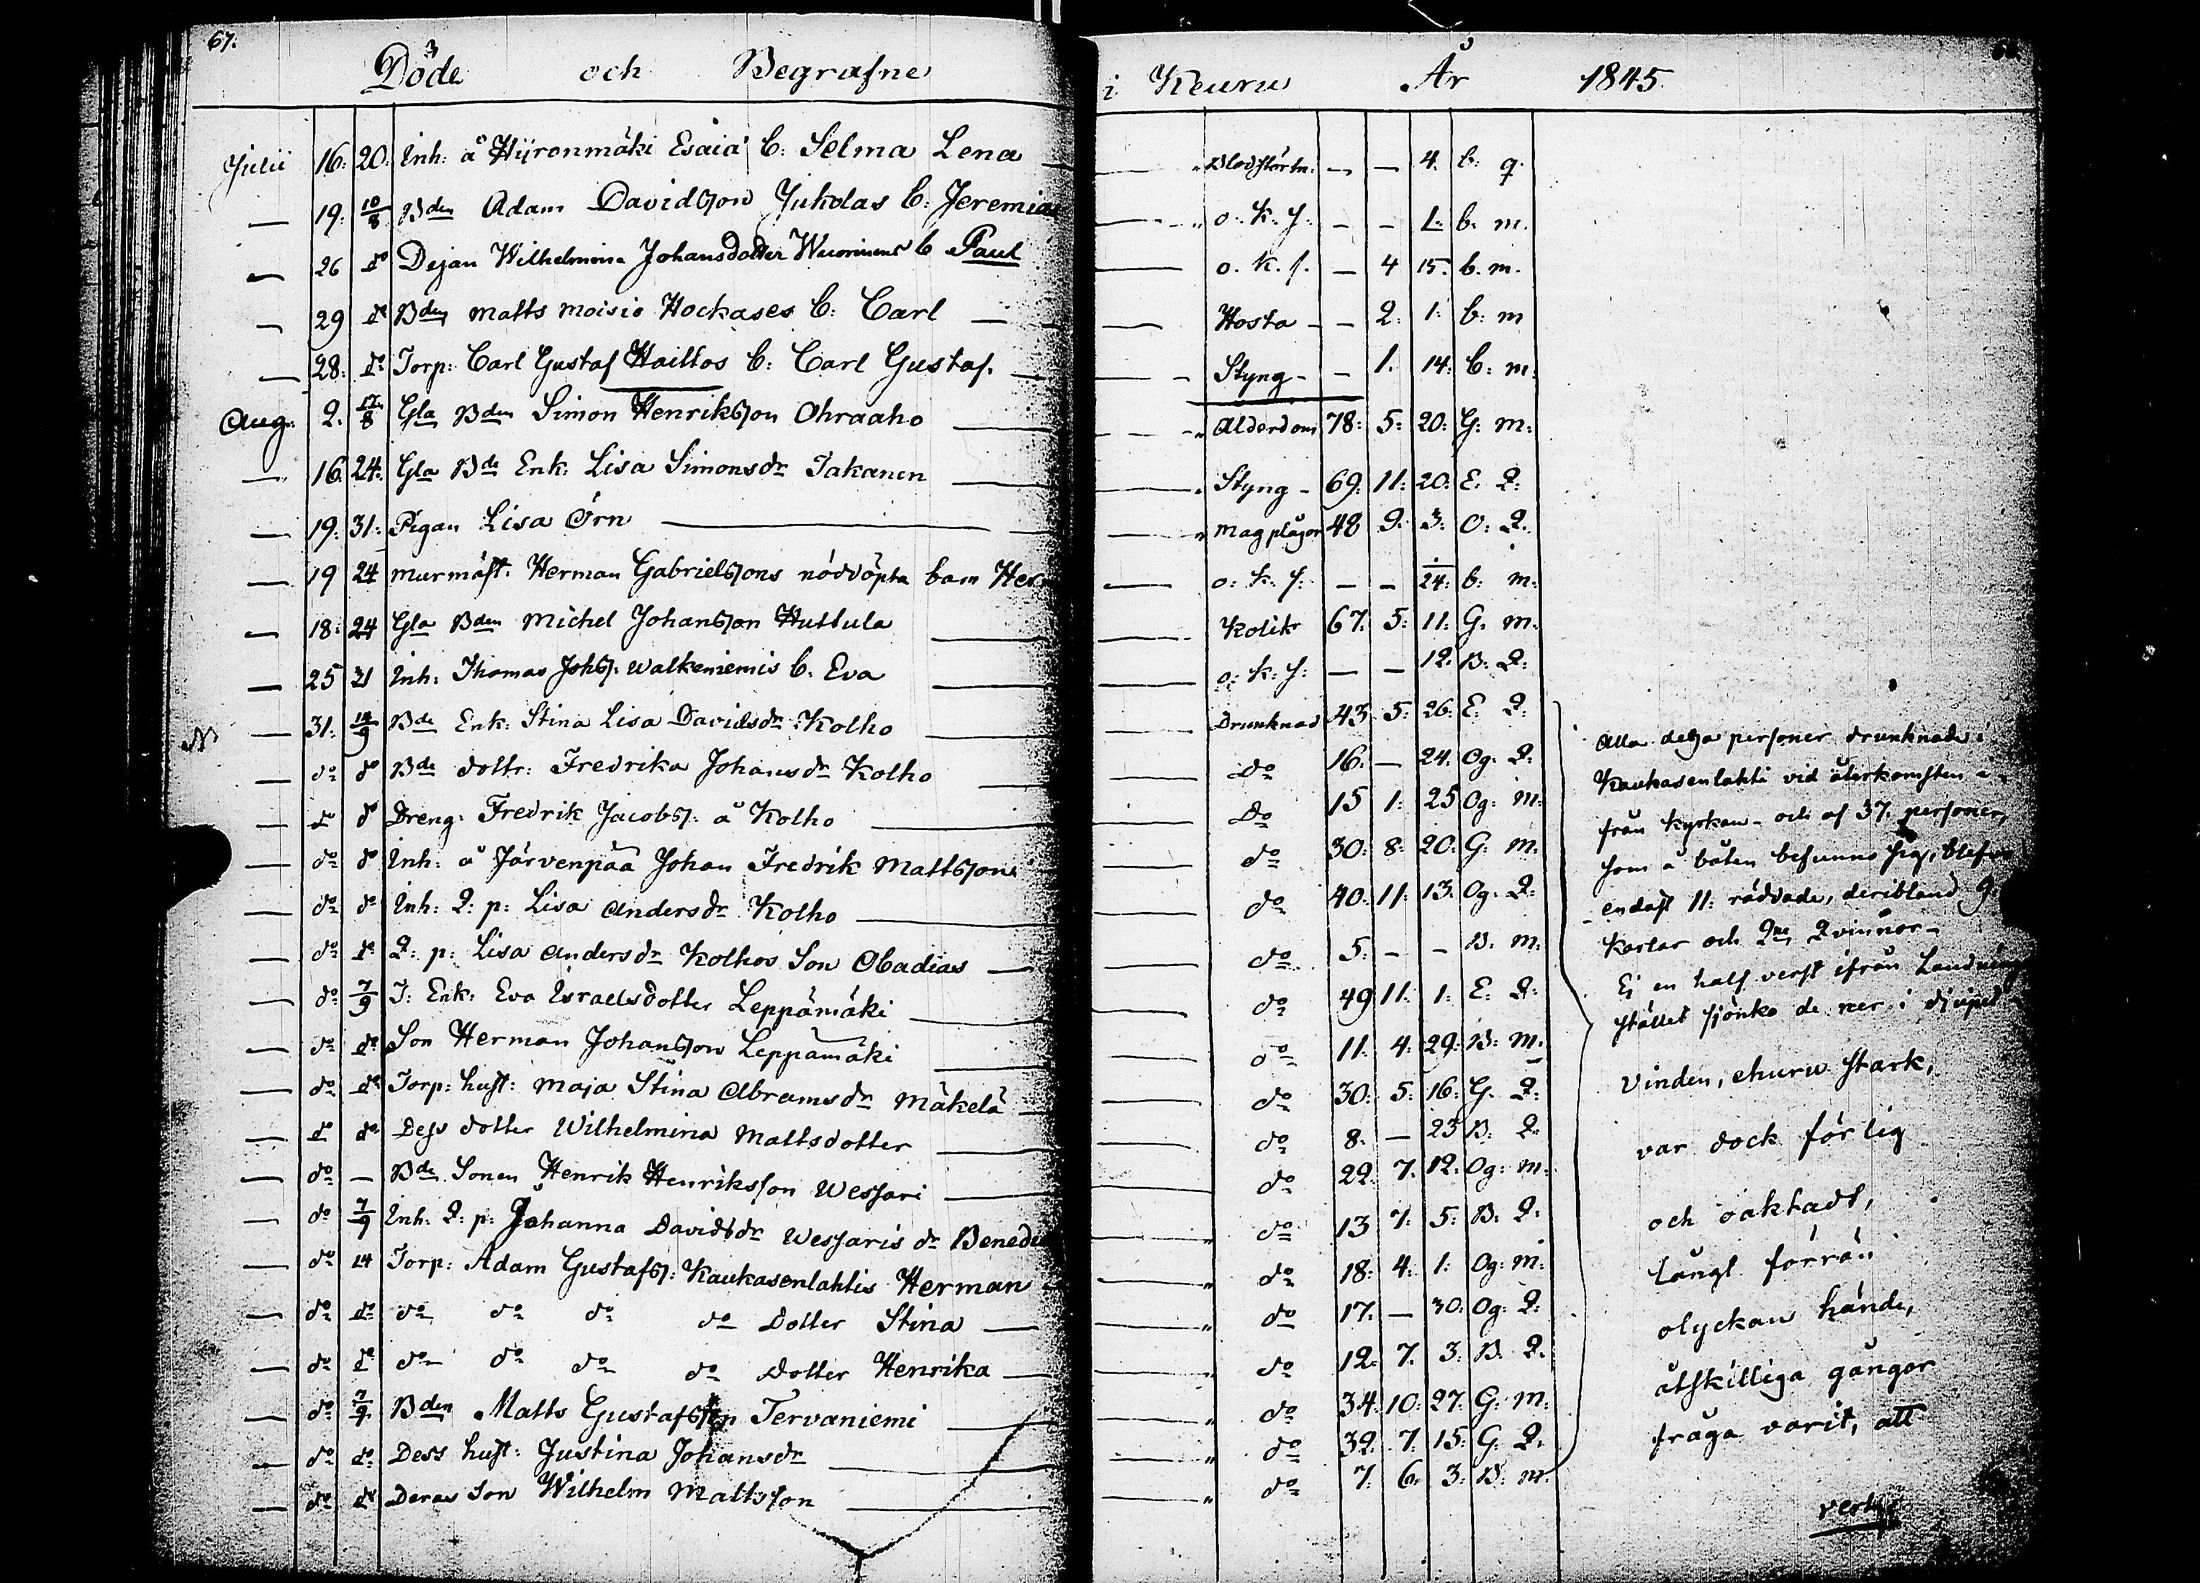 67.
Döde och Begrafne i Keuru År 1845.
Julii 16: 20: Inh: å Hyronmäki Esaia b: Selma Lena — — 4. b: q.
— 19: 10/8 Bden Adam Davidsson Jukolas b: Jeremias o: k: s: — — 1. b. m.
— 26 do Dejan Wilhelmina Johansdotter Wuorinens b Paul o. k. s. — 4 15. b. m.
— 29 do Bden Matts Moisio Hockases b: Carl Hosta — 2: 1: b: m
— 28: do Torp: Carl Gustaf Haittos b: Carl Gustaf. Styng — 1. 14: b: m:
Aug: 2. 17/8 Gla Bden Simon Henriksson Ohraaho Ålderdom 78: 5: 20: G: m:
— 16. 24. Gla Bde Enk: Lisa Simonsdr Takanen Styng — 69: 11: 20: E: Q:
— 19: 31: Pigan Lisa Örn Magplågor 48 9. 3: O: Q.
— 19 24 Murmäst: Herman Gabrielssons nöddöpta barn o: k: s: — — 24: b: m:
— 18: 24 Gla Bden Michel Johansson Huttula Kolik 67. 5: 11: G. m.
— 25 31 Inh: Thomas Johss: Walkeniemis b. Eva o: k: s: — — 12. B: Q:
N — 31: 14/9 Bde Enk: Stina Lisa Davidsdr Kolho Drunknad 43. 5: 26: E. Q:
— do do Bde dottr: Fredrika Johansdr Kolho do 16. — 24. Og. Q:
— do do Dreng: Fredrik Jacobss: å Kolho do 15 1: 25 Og: m:
— do do Inh: å Järvenpää Johan Fredrik Mattsson do 30: 8: 20: G: m:
— do do Inh: Q: p: Lisa Andersdr Kolho do 40: 11: 13: Og: Q:
— do do Q: p: Lisa Andersdr Kolhos Son Obadias do 5: — — B. m:
— do 7/9 I: Enk: Eva Israelsdotter Leppämäki do 49 11: 1: E: Q:
— do do Son Herman Johansson Leppämäki do 11: 4: 29: B: m.
— do do Torp: hust: Maja Stina Abramsdr Mäkelä do 30: 5: 16: G. Q:
— do do Dess dotter Wilhelmina Mattsdotter do 8. — 23 B: Q:
— do — Bde Sonen Henrik Henriksson Wessari do 22. 7. 12. Og: m.
— do 7/9 Inh: Q: p: Johanna Davidsdr Wessaris dr do 13 7. 5: B: Q:
— do 14 Torp: Adam Gustafss: Kaukasenlahtis Herman do 18: 4: 1: Og: m:
— do do do do do do Dotter Stina do 17. — 30: Og: Q:
— do do do do do do Dotter Henrika do 12: 7. 3: B. Q.
— do 7/9 Bden Matts Gustafsson Tervaniemi do 34: 10: 27: G: m:
— do do Dess hust: Justina Johansdr do 32. 7. 15: G. Q.
— do do Deras Son Wilhelm Mattsson do 7. 6. 3: B. m.
Alla dessa personer drunknade i
Kaukasenlahti vid återkomsten i-
från kyrkan — och af 37. personer,
som å båten befunno sig, blefvo
endast 11: räddade, deribland 9
karlar och 2ne Qvinnor —
Ej en half verst ifrån Landnings
stället sjönko de ner i djupet
Vinden, ehuru stark,
var dock förlig
och oaktadt,
långt förrän
olyckan hände,
åtskilliga gånger
fråga varit, att
vertas